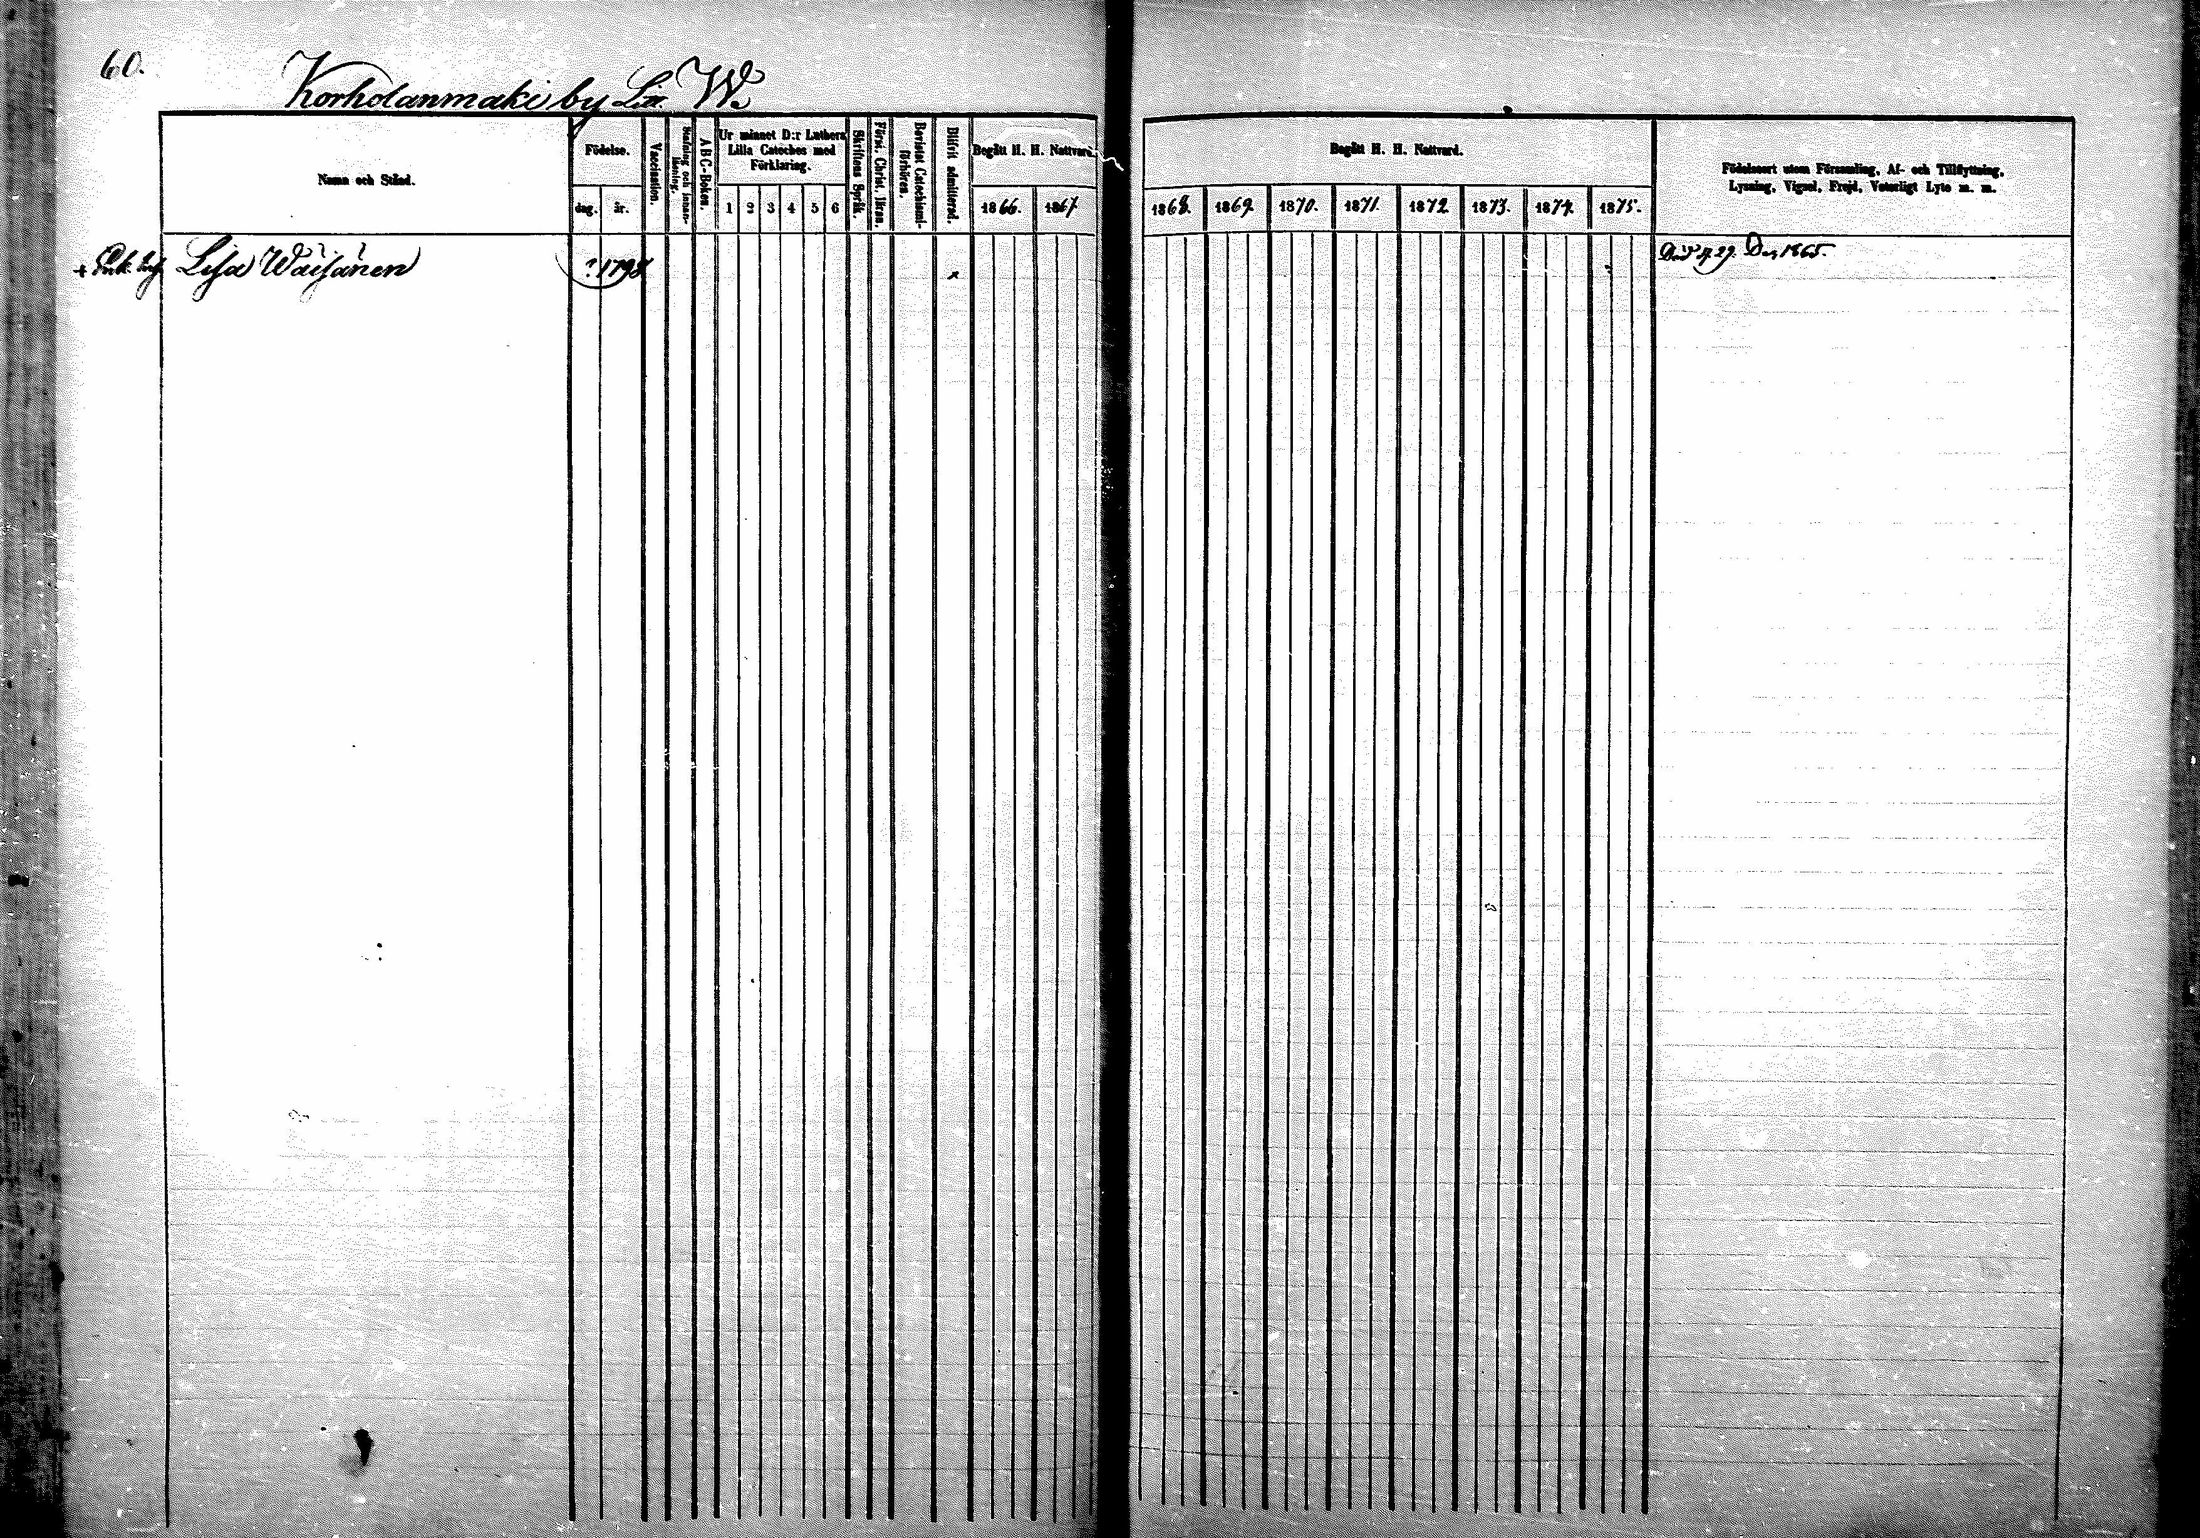 60.
Korholanmäki by Litt. W.
Namn och Stånd.
Födelse.
dag.
år.
Vaccination.
Stafning och Innanläsning.
A B C-Boken.
Ur minnet D:r Luthers
Lilla Cateches med
Förklaring.
1 2 3 4 5 6
Skriftens Språk.
Först. Christ. läran.
Bevistat Catechismi-
förhören.
Blifvit admitterad.
Begått H. H. Nattvard.
1866. 1867
Begått H. H. Nattvard.
1868. 1869. 1870. 1871. 1872. 1873. 1874. 1875.
Födelseort utom Församling, Af- och Tillflyttning,
Lysning, Vigsel, Frejd, Veterligt Lyte m. m.
+ Enk. Lisa Wäisänen ? 1798 x Död d. 29. Dec. 1865.